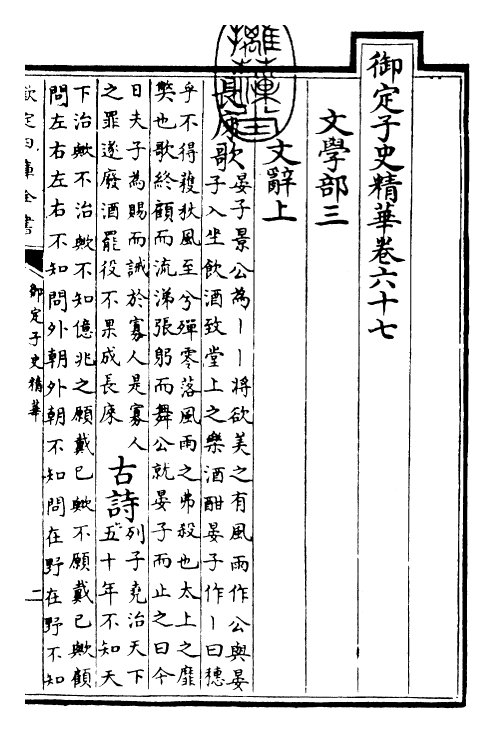 御定子史精華卷六十七
文學部三
文辭上
長庲歌
晏子景公為丨丨將欲美之有風雨作公與晏
子入坐飲酒致堂上之樂酒酣晏子作丨曰穗
乎不得穫秋風至兮殫零落風雨之弗殺也太上之靡
獘也歌終顧而流涕張躬而舞公就晏子而止之曰今
日夫子為賜而誡於寡人是寡人
之罪遂廢酒罷役不果成長庲
古詩
列子堯治天下
五十年不知天
下治歟不治歟不知億兆之願戴已歟不願戴已歟顧
問左右左右不知問外朝外朝不知問在野在野不知
欽定四庫全書
御定子史精華
二